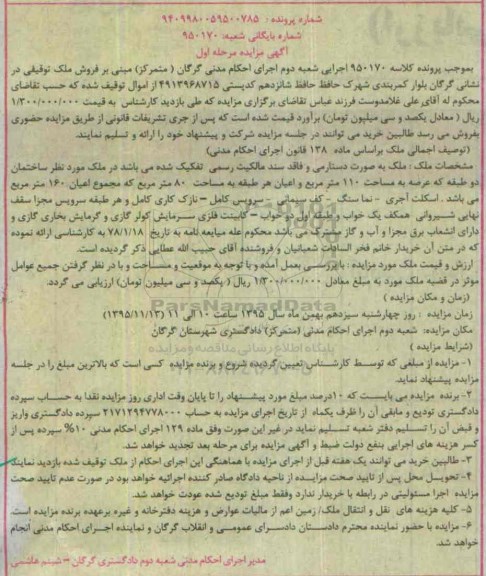 شماره پرونده : ۹۴۰۹۹۸۰۰۵۹۵۰۰۷۸۵
شماره بایگانی شعبه: ۹۵۰۱۷۰
آگهی مزایده مرحله اول
بموجب پرونده کلاسه ۹۵۰۱۷۰ اجرایی شعبه دوم اجرای احکام مدنی گرگان ( متمرکز) مبنی بر فروش ملک توقیفی در
نشانی گرگان بلوار کمربندی شهرک حافظ حافظ شانزدهم کدپستی ۴۹۱۳۹۶۸۷۱۵ از اموال توقیف شده که حسب تقاضای
محکوم له آقای علی غلامدوست فرزند عباس تقاضای برگزاری مزایده که طی بازدید کارشناس به قیمت ۱/۳۰۰/۰۰۰/۰۰۰
ریال ( معادل یکصد و سی میلیون تومان) برآورد قیمت شده است که پس از جری تشریفات قانونی از طریق مزایده حضوری
بفروش می رسد طالبین خرید می توانند در جلسه مزایده شرکت و پیشنهاد خود را ارائه و تسلیم نمایند.
(توصیف اجمالی ملک براساس ماده ۱۳۸ قانون اجرای احکام مدنی)
مشخصات ملک : ملک به صورت دستارمی و فاقد سند مالکیت رسمی تفکیک شده می باشد در ملک مورد نظر ساختمان
دو طبقه که عرصه به مساحت ۱۱۰ متر مربع و اعیان هر طبقه به مساحت ۸۰ متر مربع که مجموع اعیان ۱۶۰ متر مربع
می باشد . اسکلت آجری - نما سنگ - کف سیمانی - سرویس کامل – نازک کاری کامل و هر طبقه سرویس مجزا سقف
نهایی شیروانی همکف یک خواب و طبقه اول دو خواب – کابینت فلزی سرمایش کولر گازی و گرمایش بخاری گازی و
دارای انشعاب برق مجزا و آب و گاز مشترک می باشد محکوم علیه مبایعه نامه به تاریخ ۷۸/۱/۱۸ به کارشناسی ارائه نموده
که در متن آن خریدار خانم فخر السادات شعبانیان و فروشنده آقای حبیب الله عطایی ذکر گردیده است.
ارزش و قیمت ملک مورد مزایده : با بررسی بعمل آمده و با توجه به موقعیت و مساحت و با در نظر گرفتن جمیع عوامل
موثر در قضیه ملک مورد به مبلغ معادل ۱/۳۰۰/۰۰۰/۰۰۰ ریال ( یکصد و سی میلیون تومان) ارزیابی می گردد.
(زمان و مکان مزایده )
زمان مزایده : روز چهارشنبه سیزدهم بهمن ماه سال ۱۳۹۵ ساعت ۱۰ الی ۱۱ (۱۳۹۵/۱۱/۱۳)
مکان مزایده: شعبه دوم اجرای احکام مدنی (متمرکز) دادگستری شهرستان گرگان
(شرایط مزایده )
۱- مزایده از مبلغی که توسط کارشناس تعیین گردیده شروع و برنده مزایده کسی است که بالاترین مبلغ را در جلسه
مزایده پیشنهاد نماید.
۲- برنده مزایده می بایست که ۱۰درصد مبلغ مورد پیشنهاد را تا پایان وقت اداری روز مزایده نقدا به حساب سپرده
دادگستری تودیع و مابقی آن را ظرف یکماه از تاریخ اجرای مزایده به حساب ۲۱۷۱۲۹۴۷۷۸۰۰۰ سپرده دادگستری واریز
و قبض آن را تسلیم دفتر شعبه تسلیم نماید در غیر این صورت وفق ماده ۱۲۹ اجرای احکام مدنی ۱۰% سپرده پس از
کسر هزینه های اجرایی بنفع دولت ضبط و آگهی مزایده برای مرحله بعد تجدید خواهد شد.
۳- طالبین خرید می توانند یک هفته قبل از اجرای مزایده با هماهنگی این اجرای احکام از ملک توقیف شده بازدید نمایند
۴- تحویل محل پس از تایید صحت مزایده از ناحیه دادگاه صادر کننده اجرائیه خواهد بود در صورت عدم تایید صحت
مزایده اجرا مسئولیتی در رابطه با خریدار ندارد وفقط مبلغ تودیع شده عودت خواهد شد.
۵- کلیه هزینه های نقل و انتقال ملک/ زمین اعم از مالیات عوارض و هزینه دفترخانه و غیره برعهده برنده مزایده است
۶- مزایده با حضور نماینده محترم دادستان دادسرای عمومی و انقلاب گرگان و نماینده اجرای احکام مدنی انجام
خواهد شد.
مدیر اجرای احکام مدنی شعبه دوم دادگستری گرگان – شبنم هاشمی
ParsNamadData
پایگاه اطلاع رسانی مناقصه و مزایده